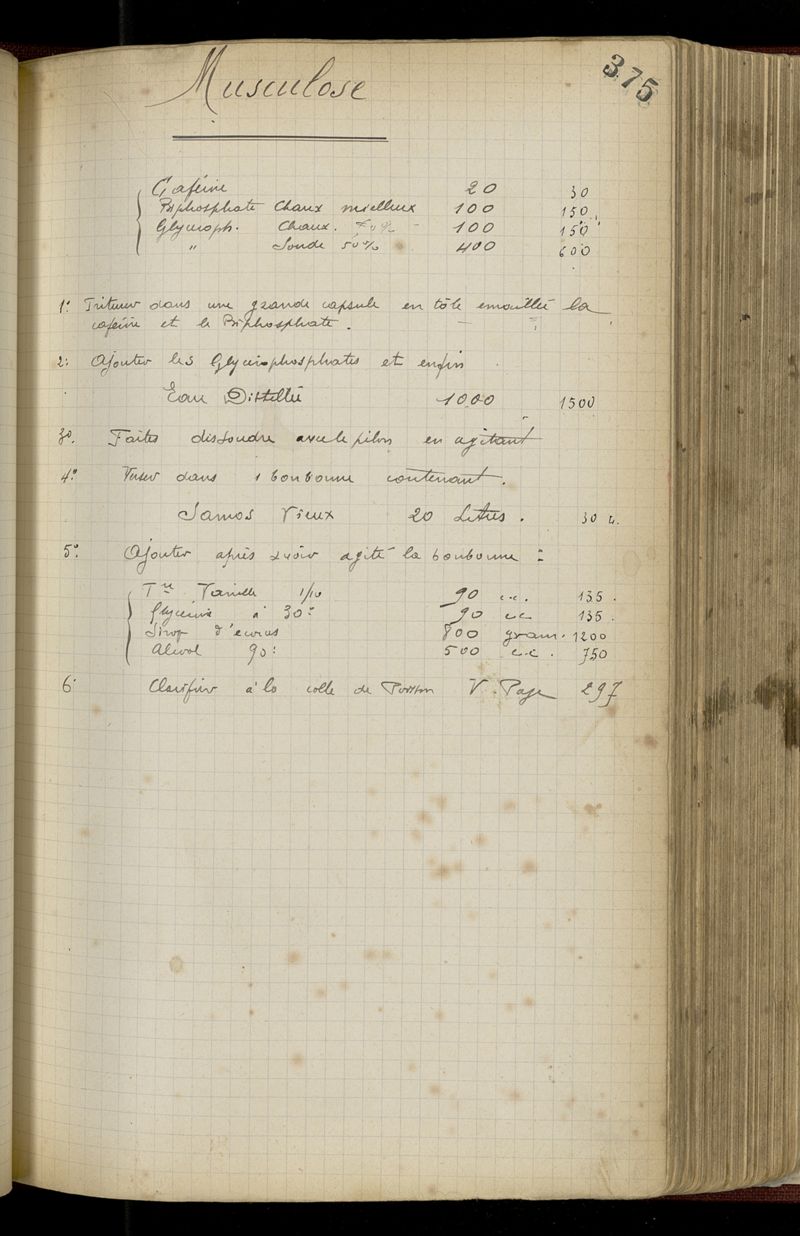 375
Musculose
Caféine 20 30
Biphosphate Chaux mielleux 100 150
Glyceroph. Chaux. 100 150
" Soude 50% 400 600
1° Triturer dans une grande capsule en tôle emaillée la
caféine et le Biphosphate.
2: Ajouter les Glycerophosphates et enfin
Eau Distillée 1000 1500
3° Faites dissoudre avec le pilon en agitant
4° Verser dans 1 bonbonne contenant.
Samos Vieux 20 Litres. 30 L.
5° Ajouter après avoir agité la bonbonne :
Tre Vanille 1/10 90 c.c. 135.
Glycerine à 30° 90 cc 135.
Sirop d'ecorces 800 gram. 1200
Alcool 90° 500 c.c. 750
6 Clarifier à la colle de Poisson V. Page 297